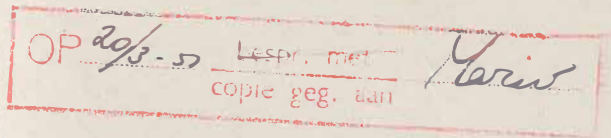 OP 20/3-51 bespr. met Yariv
copie geg. aan